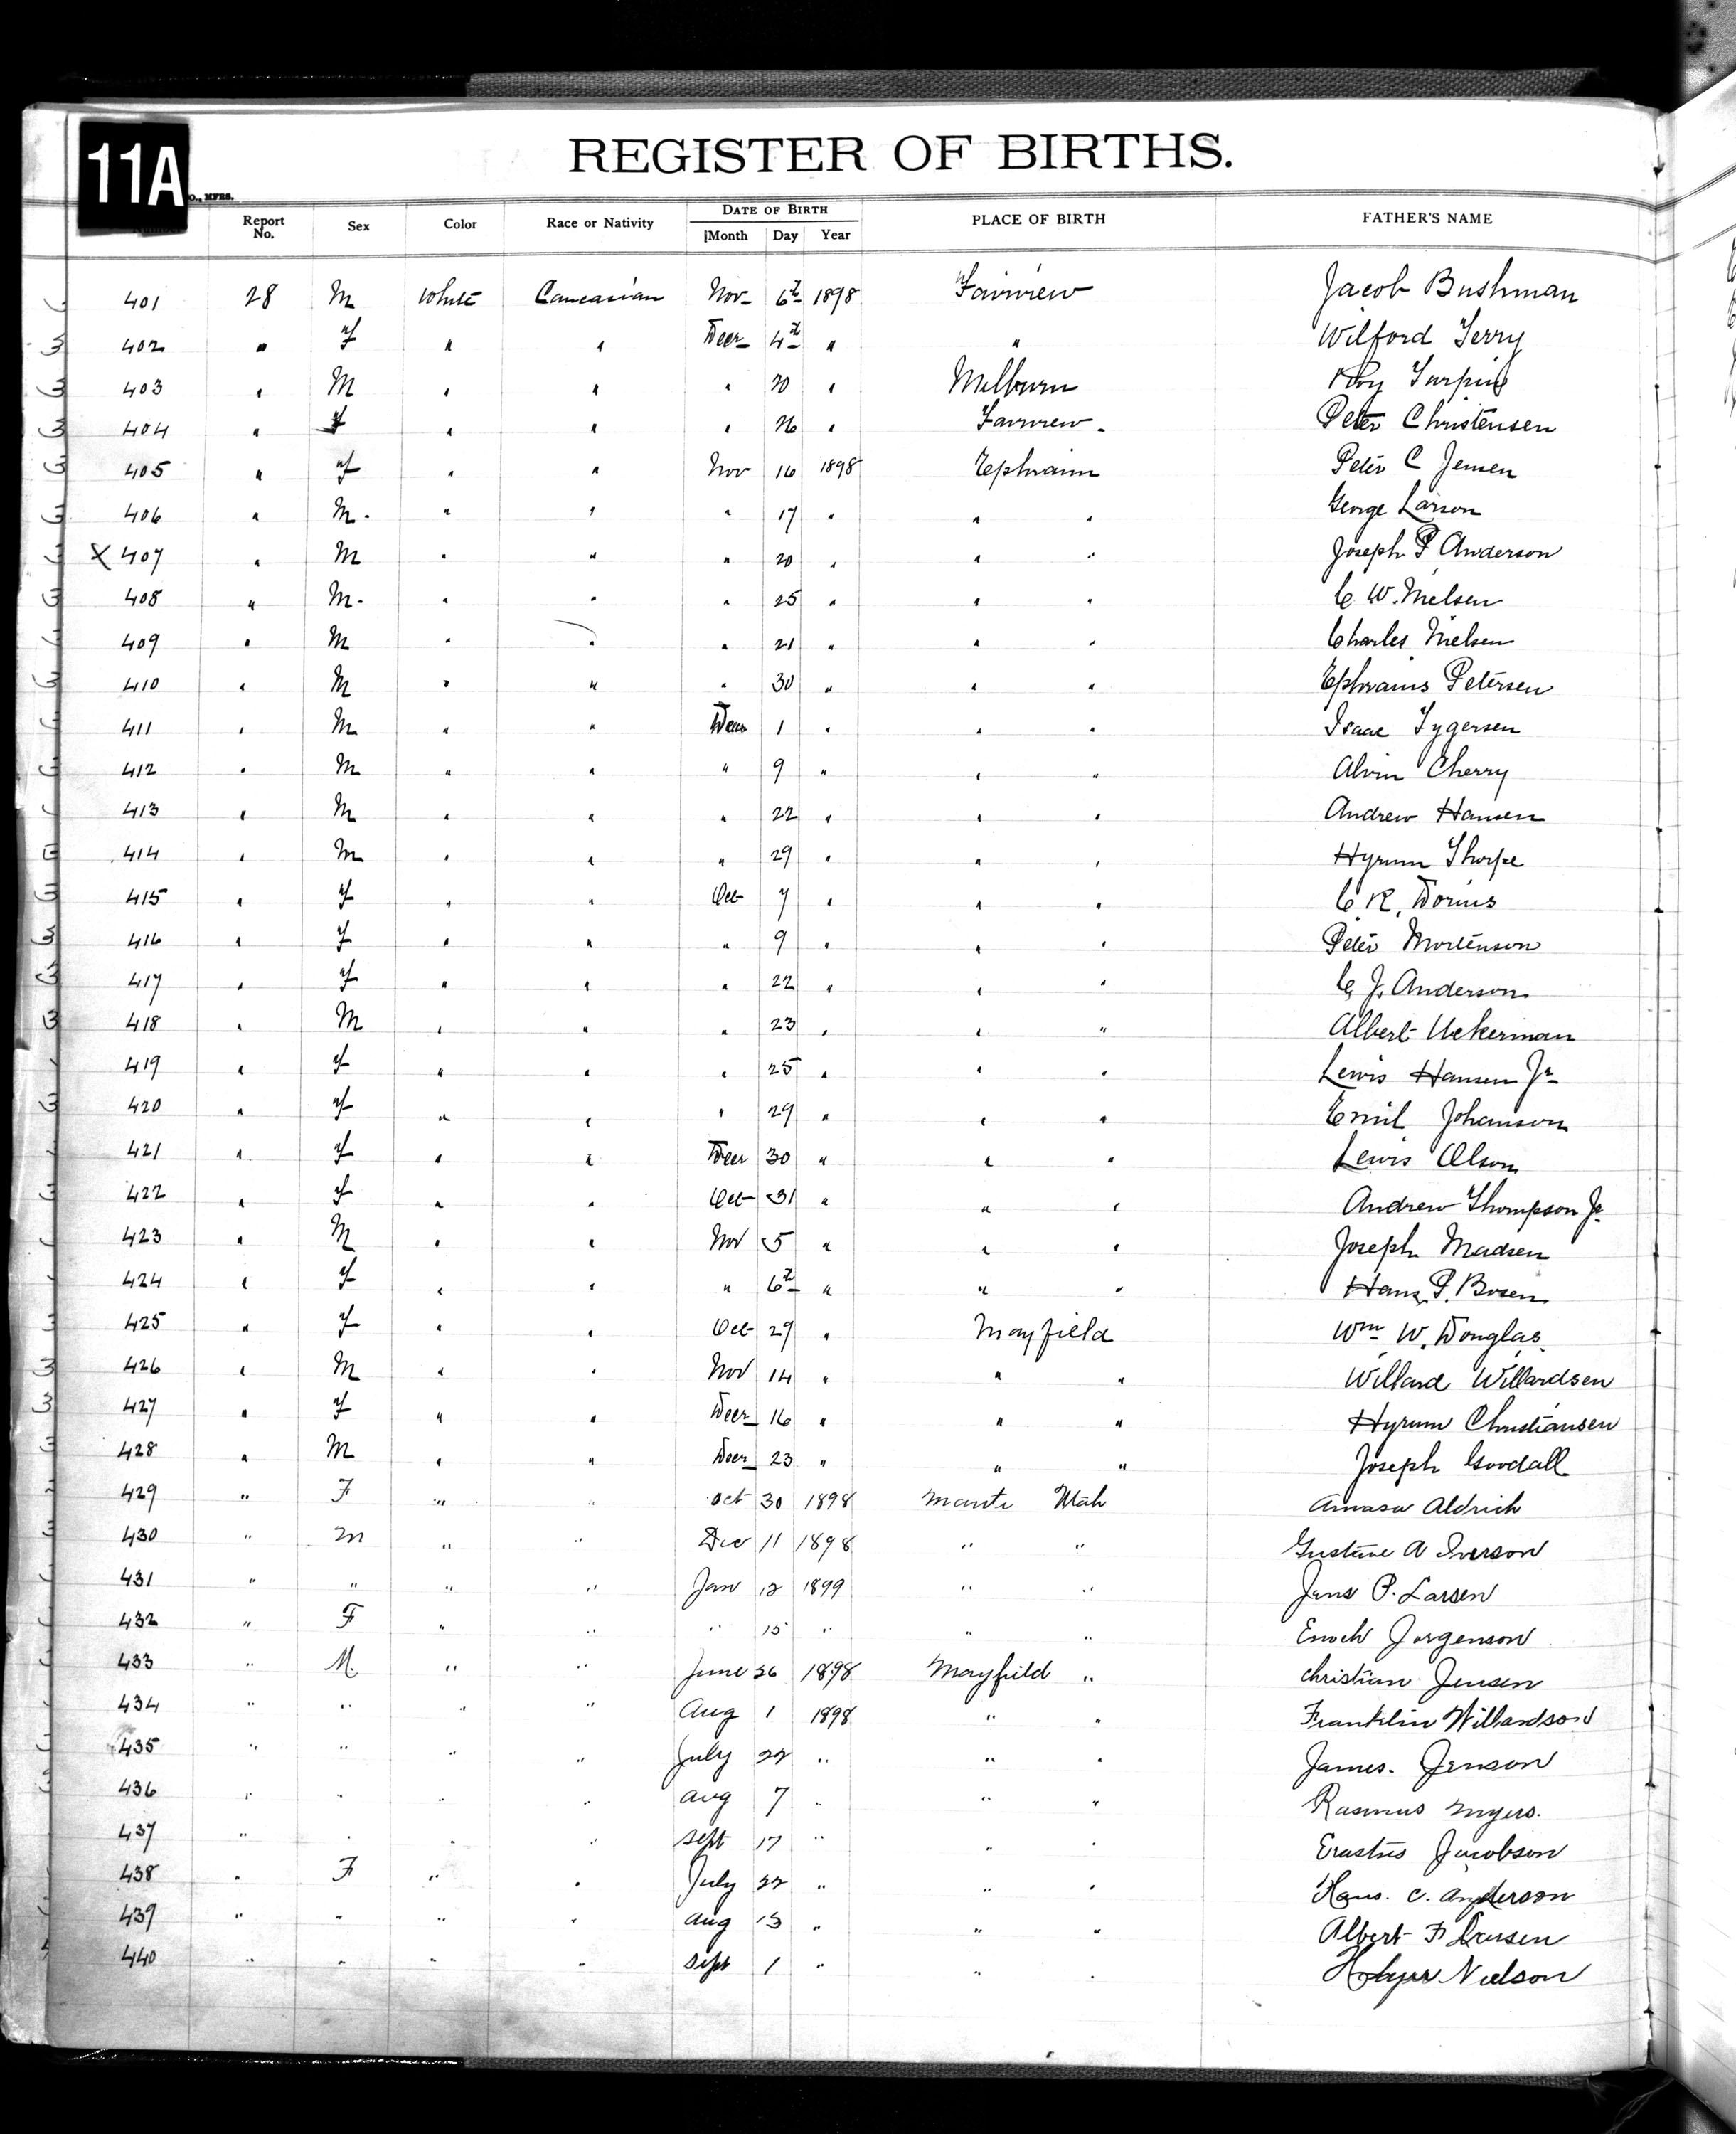 11A
O., MFRS.
REGISTER OF BIRTHS.
Number Report No. Sex Color Race or Nativity DATE OF BIRTH Month Day Year PLACE OF BIRTH FATHER'S NAME
401 28 M White Caucasian Nov 6th 1898 Fairview Jacob Bushman
402 " F " " Decr 4th " " Wilford Terry
403 " M " " " 20 " Milburn Roy Turpin
404 " F " " " 26 " Fairview Peter Christensen
405 " F " " Nov 16 1898 Ephraim Peter C Jensen
406 " M. " " " 17 " " " George Larson
X 407 " M " " " 20 " " " Joseph P Anderson
408 " M. " " " 25 " " " C. W. Nielsen
409 " M " " " 21 " " " Charles Nielsen
410 " M " " " 30 " " " Ephraim Petersen
411 " M " " Decr 1 " " " Isaac Tygersen
412 " M " " " 9 " " " Alvin Cherry
413 " M " " " 22 " " " Andrew Hansen
414 " M " " " 29 " " " Hyrum Thorpe
415 " F " " Oct 7 " " " C. R. Dorius
416 " F " " " 9 " " " Peter Mortenson
417 " F " " " 22 " " " C. J. Anderson
418 " M " " " 23 " " " Albert Uckerman
419 " F " " " 25 " " " Lewis Hansen Jr
420 " F " " " 29 " " " Emil Johanson
421 " F " " Decr 30 " " " Lewis Olson
422 " F " " Oct 31 " " " Andrew Thompson Jr
423 " M " " Nov 5 " " " Joseph Madsen
424 " F " " " 6th " " " Hans P. Bosen
425 " F " " Oct 29 " Mayfield Wm W. Douglas
426 " M " " Nov 14 " " " Willard Willardsen
427 " F " " Decr 16 " " " Hyrum Christiansen
428 " M " " Decr 23 " " " Joseph Goodall
429 " F " " Oct 30 1898 Manti Utah Amasa Aldrich
430 " M " " Dec 11 1898 " " Gustave A Iverson
431 " " " " Jan 12 1899 " " Jens P. Larsen
432 " F " " " 15 " " " Enoch Jorgenson
433 " M. " " June 26 1898 Mayfield " Christian Jensen
434 " " " " Aug 1 1898 " " Franklin Willardson
435 " " " " July 22 " " " James. Jenson
436 " " " " Aug 7 " " " Rasmus Myers.
437 " " " " Sept 17 " " " Erastus Jacobson
438 " F " " July 22 " " " Hans. C. Anderson
439 " " " " Aug 13 " " " Albert F Larsen
440 " " " " Sept 1 " " " Nielson